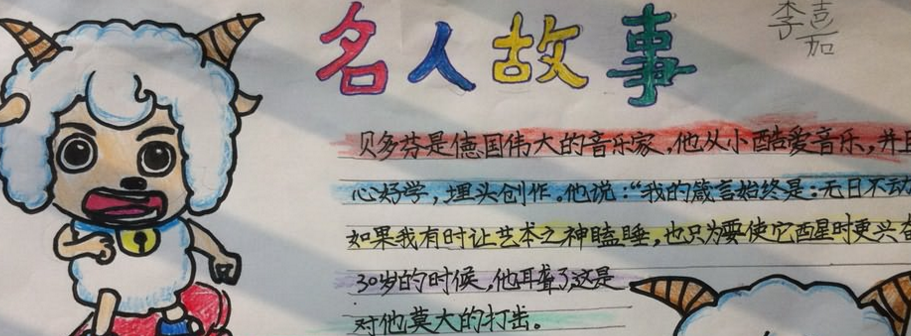 名人故事
李嘉茄
贝多芬是德国伟大的音乐家,他从小酷爱音乐,并且
心好学,埋头创作。他说:“我的箴言始终是:无日不动
如果我有时让艺术之神瞌睡,也只为要使它酉星时更兴奋
30岁的时候,他耳聋了,这是
对他莫大的打击。